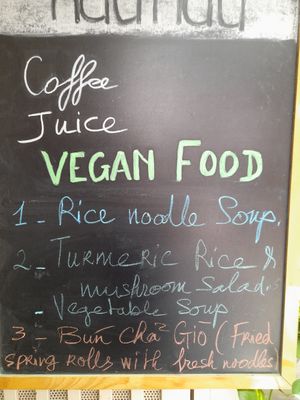 Coffee
Juice
VEGAN FOOD
1 - Rice noodle Soup.
2 - TURMERIC RICE &
mushroom Salad.
- Vegetable Soup
3 - BUN CHẢ GIÒ (FRIED
SPRING ROLLS WITH FRESH NOODLES